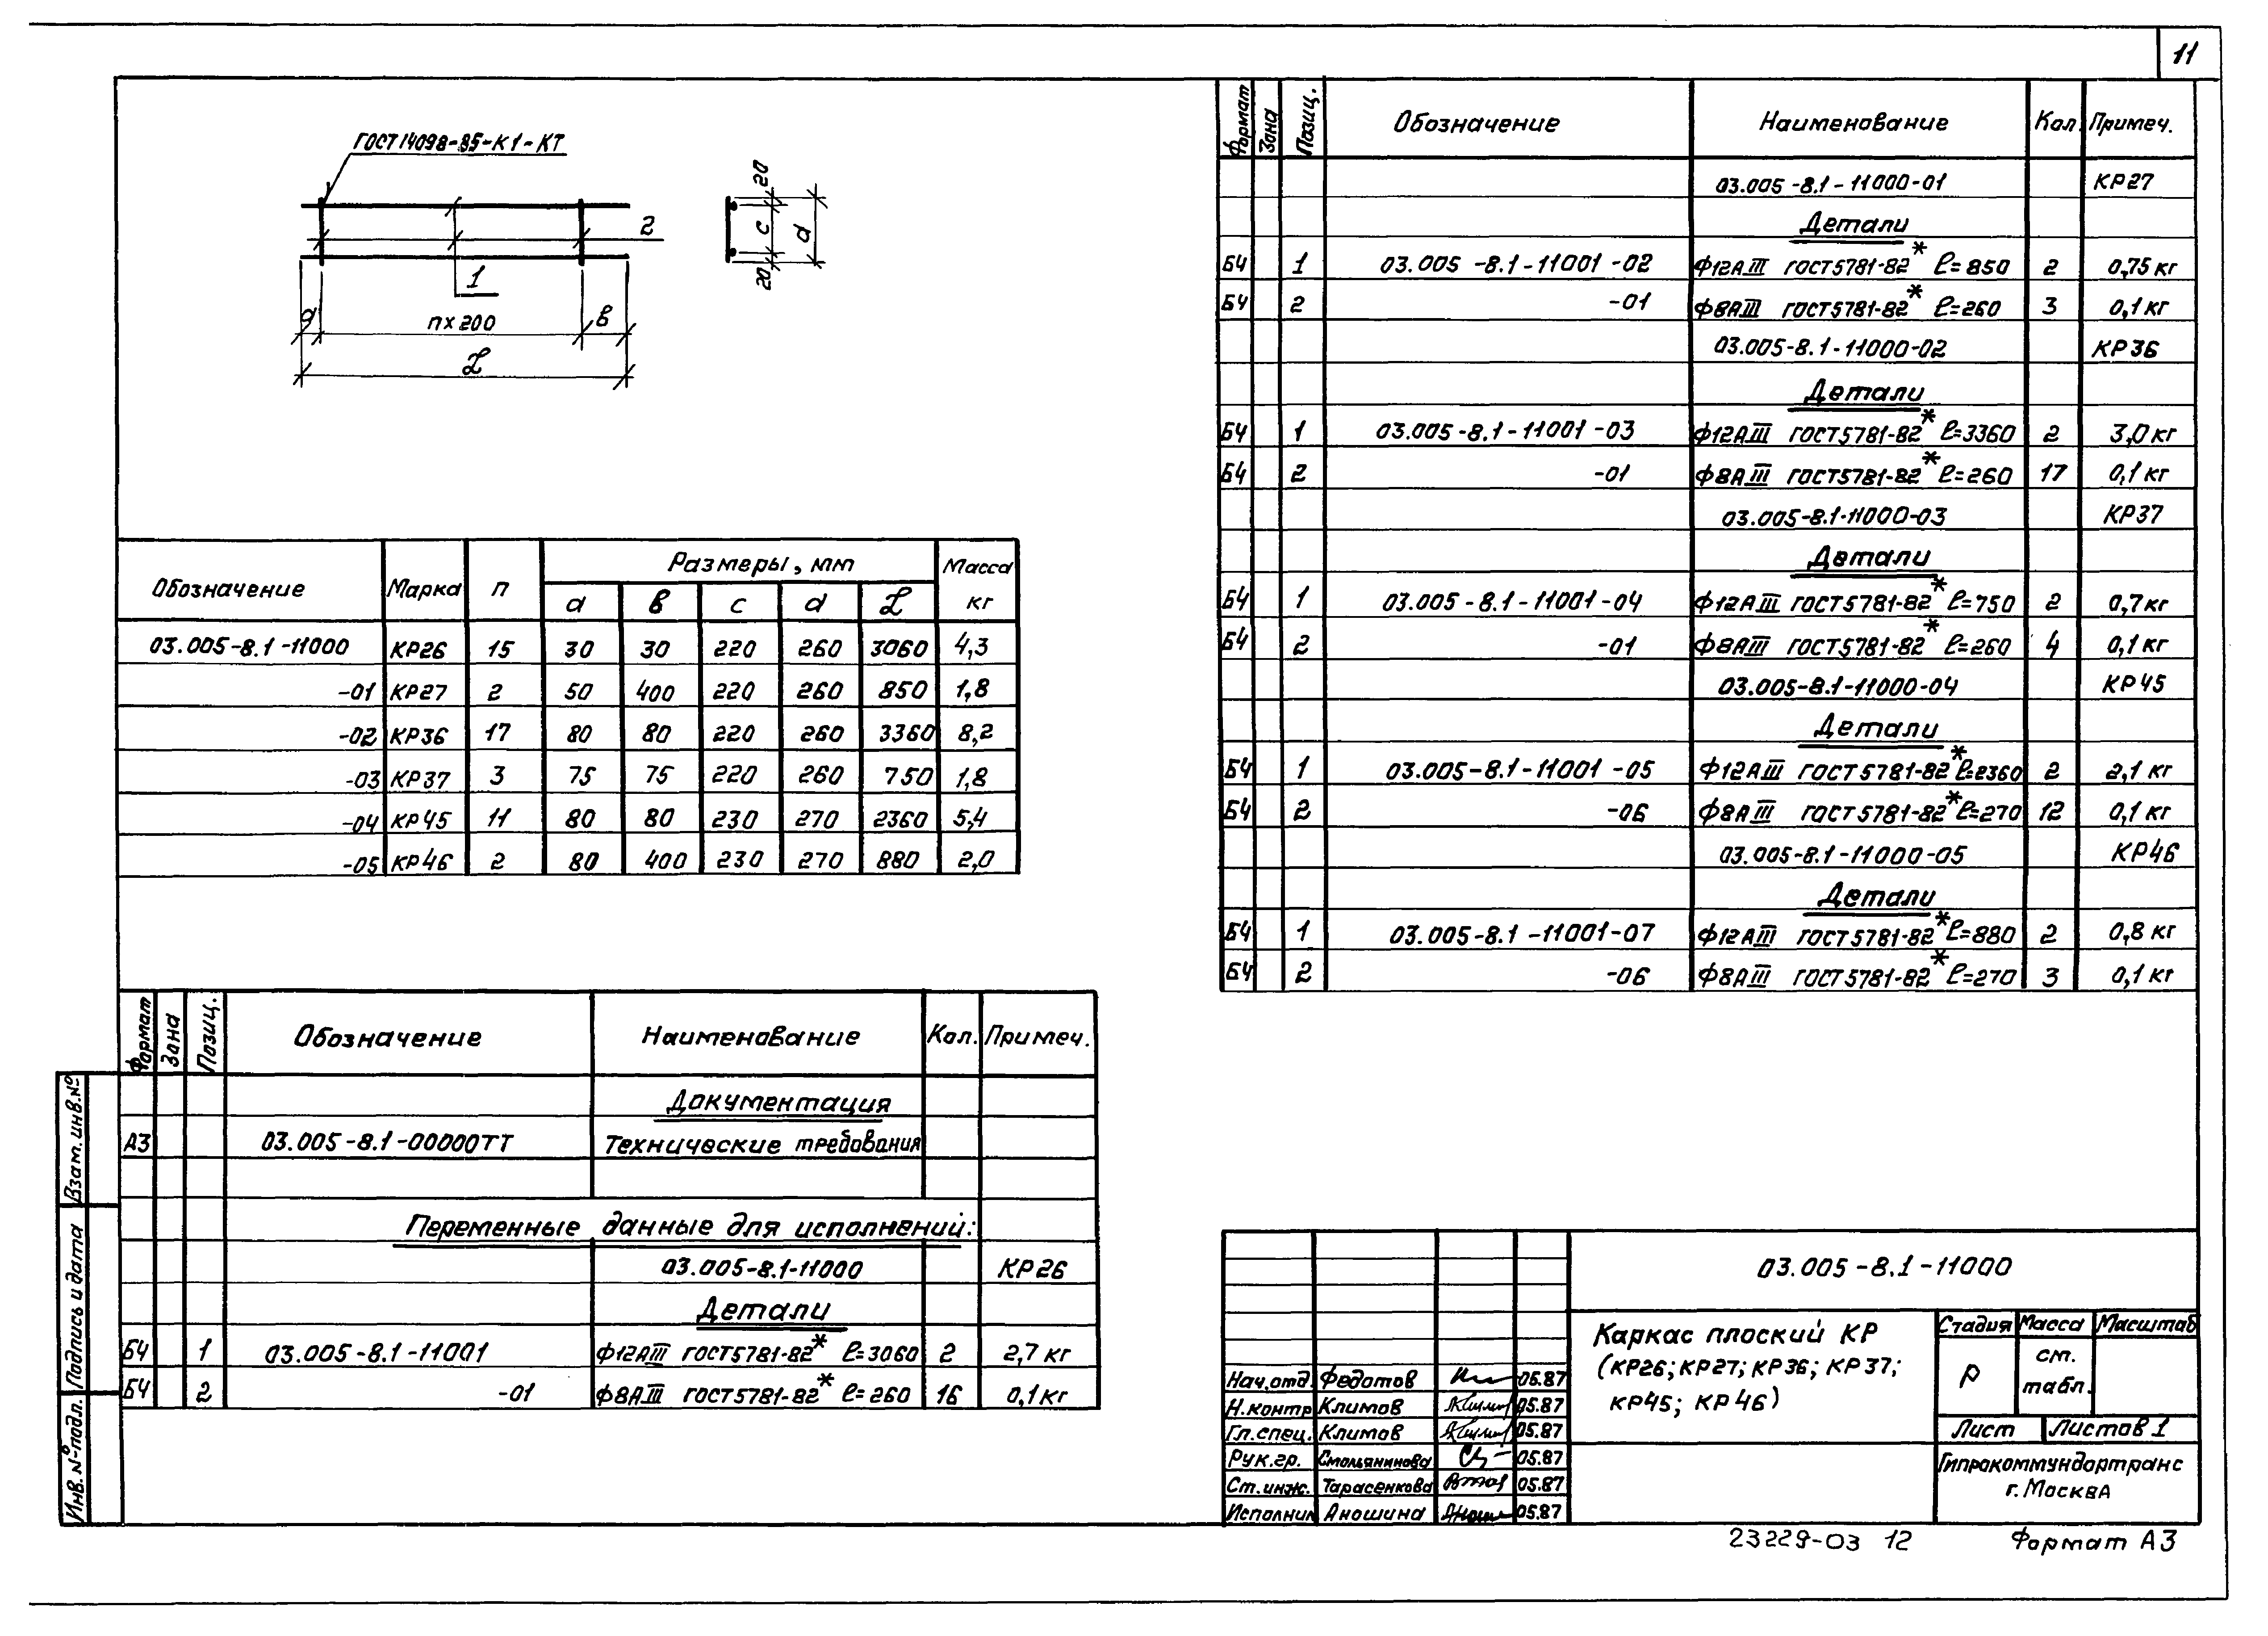 11
ГОСТ14098-85-К1-КТ
2
1
а
п×200
в
L
20
с
d
20
Обозначение Марка п Размеры, мм Масса кг
а в с d L
03.005-8.1-11000 КР26 15 30 30 220 260 3060 4,3
-01 КР27 2 50 400 220 260 850 1,8
-02 КР36 17 80 80 220 260 3360 8,2
-03 КР37 3 75 75 220 260 750 1,8
-04 КР45 11 80 80 230 270 2360 5,4
-05 КР46 2 80 400 230 270 880 2,0
Формат Зона Позиц. Обозначение Наименование Кол. Примеч.
Документация
А3 03.005-8.1-00000ТТ Технические требования
Переменные данные для исполнений:
03.005-8.1-11000 КР26
Детали
Б4 1 03.005-8.1-11001 Ф12АIII ГОСТ5781-82* ℓ=3060 2 2,7 кг
Б4 2 -01 Ф8АIII ГОСТ5781-82* ℓ=260 16 0,1 кг
Формат Зона Позиц. Обозначение Наименование Кол. Примеч.
03.005-8.1-11000-01 КР27
Детали
Б4 1 03.005-8.1-11001-02 Ф12АIII ГОСТ5781-82* ℓ=850 2 0,75 кг
Б4 2 -01 Ф8АIII ГОСТ5781-82* ℓ=260 3 0,1 кг
03.005-8.1-11000-02 КР36
Детали
Б4 1 03.005-8.1-11001-03 Ф12АIII ГОСТ5781-82* ℓ=3360 2 3,0 кг
Б4 2 -01 Ф8АIII ГОСТ5781-82* ℓ=260 17 0,1 кг
03.005-8.1-11000-03 КР37
Детали
Б4 1 03.005-8.1-11001-04 Ф12АIII ГОСТ5781-82* ℓ=750 2 0,7 кг
Б4 2 -01 Ф8АIII ГОСТ5781-82* ℓ=260 4 0,1 кг
03.005-8.1-11000-04 КР45
Детали
Б4 1 03.005-8.1-11001-05 Ф12АIII ГОСТ5781-82* ℓ=2360 2 2,1 кг
Б4 2 -06 Ф8АIII ГОСТ5781-82* ℓ=270 12 0,1 кг
03.005-8.1-11000-05 КР46
Детали
Б4 1 03.005-8.1-11001-07 Ф12АIII ГОСТ5781-82* ℓ=880 2 0,8 кг
Б4 2 -06 Ф8АIII ГОСТ5781-82* ℓ=270 3 0,1 кг
Взам. инв.№
Подпись и дата
Инв. №подл.
03.005-8.1-11000
Каркас плоский КР
(КР26; КР27; КР36; КР37;
КР45; КР46)
Стадия Масса Масштаб
Р ст. табл.
Лист Листов 1
Гипрокоммундортранс
г. Москва
Нач.отд. Федотов 05.87
Н.контр Климов 05.87
Гл.спец. Климов 05.87
Рук.гр. Смольянинова 05.87
Ст.инж. Тарасенкова 05.87
Исполнил Аношина 05.87
23229-03 12
Формат А3